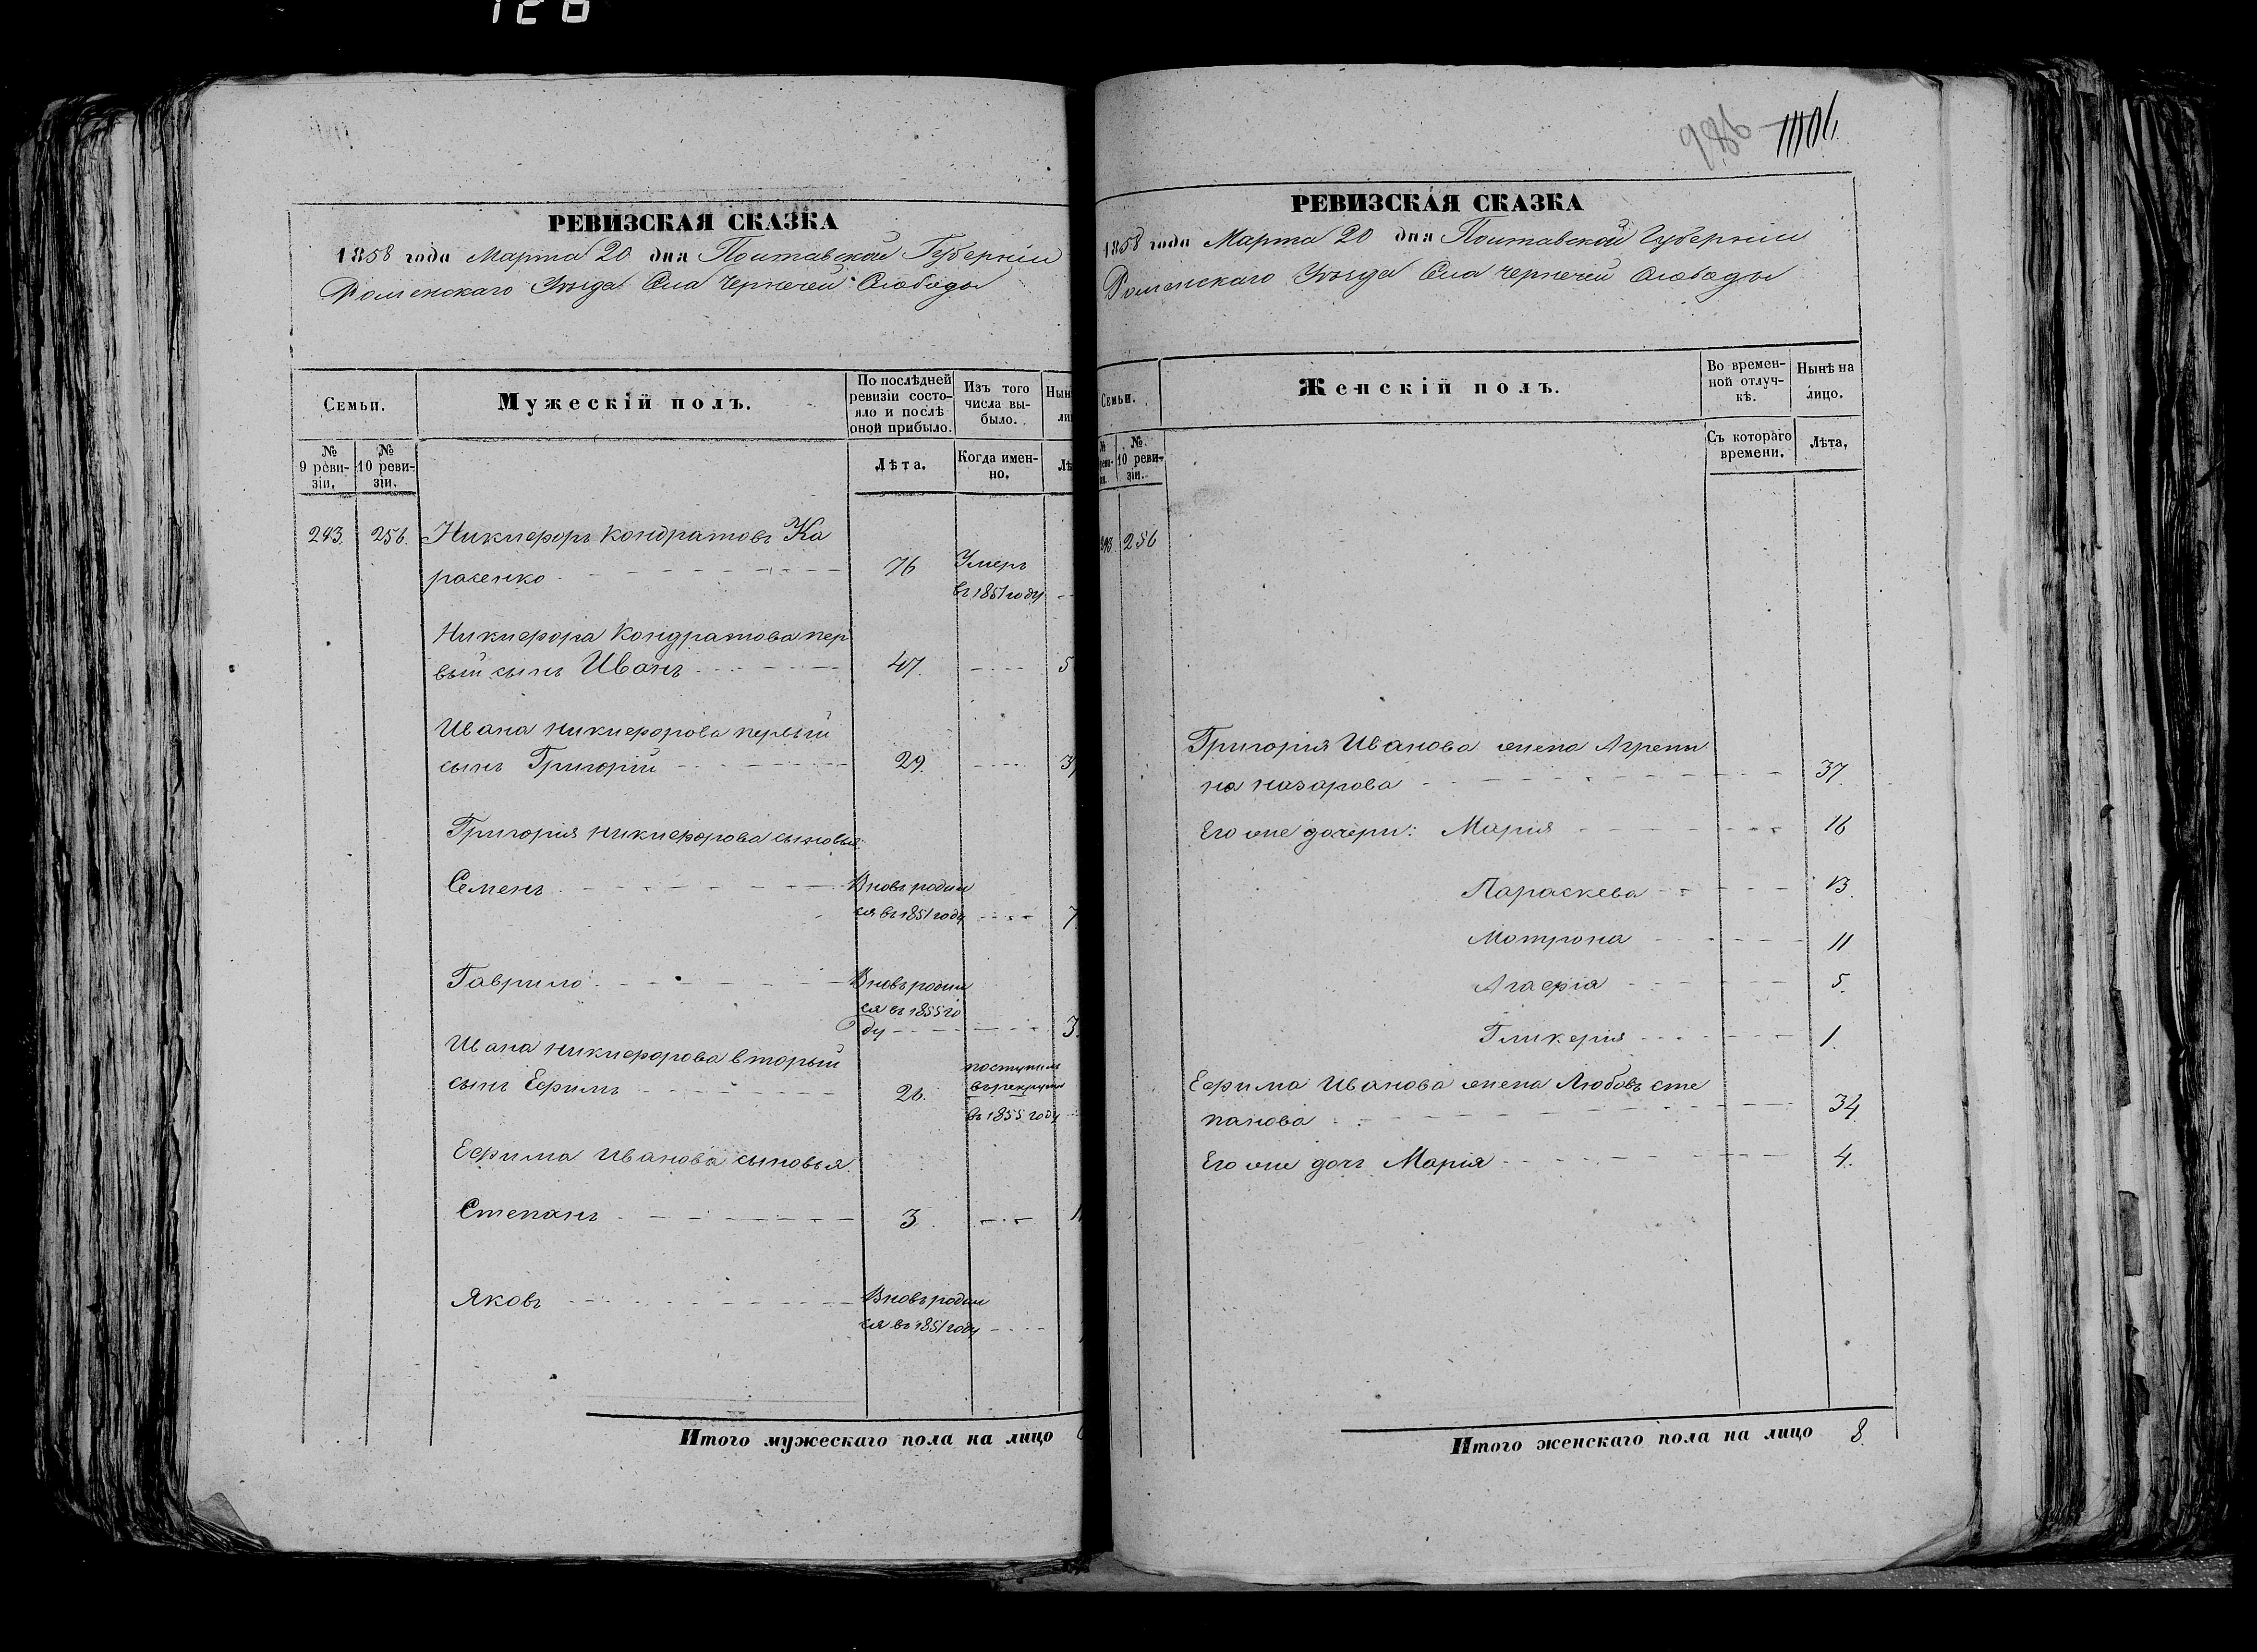 128
РЕВИЗСКАЯ СКАЗКА
1858 года Марта 20 дня Полтавской Губерніи
Роменскаго Уѣзда Села Чернечей Слободы
Семьи.
Мужескій полъ.
По послѣдней ревизіи состояло и послѣ оной прибыло.
Изъ того числа выбыло.
Нын
ли
№ 9 ревизіи.
№ 10 ревизіи.
Лѣта.
Когда именно.
Лѣ
293. 256. Никифоръ Кондратовъ Ка
расенко 76 Умеръ
въ 1851 году
Никифора Кондратова пер
вый сынъ Иванъ 47. 5
Ивана Никифорова первый
сынъ Григорій 29. 3
Григорія Никифорова сыновья:
Семенъ Вновь родил
ся въ 1851 году 7
Гаврило Вновь родил
ся въ 1855 го
ду 3.
Ивана Никифорова вторый
сынъ Ефимъ 26. поступилъ
въ рекруты
въ 1855 году
Ефима Иванова сыновья
Степанъ 3. 1
Яковъ Вновь родил
ся въ 1851 году
Итого мужескаго пола на лицо
986
РЕВИЗСКАЯ СКАЗКА
1858 года Марта 20 дня Полтавской Губерніи
Роменскаго Уѣзда Села Чернечей Слободы
Семьи.
Женскій полъ.
Во временной отлучкѣ.
Нынѣ на лицо.
№ 10 ревизіи.
Съ котораго времени.
Лѣта,
293. 256
Григорія Иванова жена Агрепи
на Назарова 37.
Его же дочери: Марія 16
Параскева 13.
Мотрона 11
Агафія 5.
Гликерія 1.
Ефима Иванова жена Любовь Сте
панова 34
Его же дочь Марія 4.
Итого женскаго пола на лицо 8.